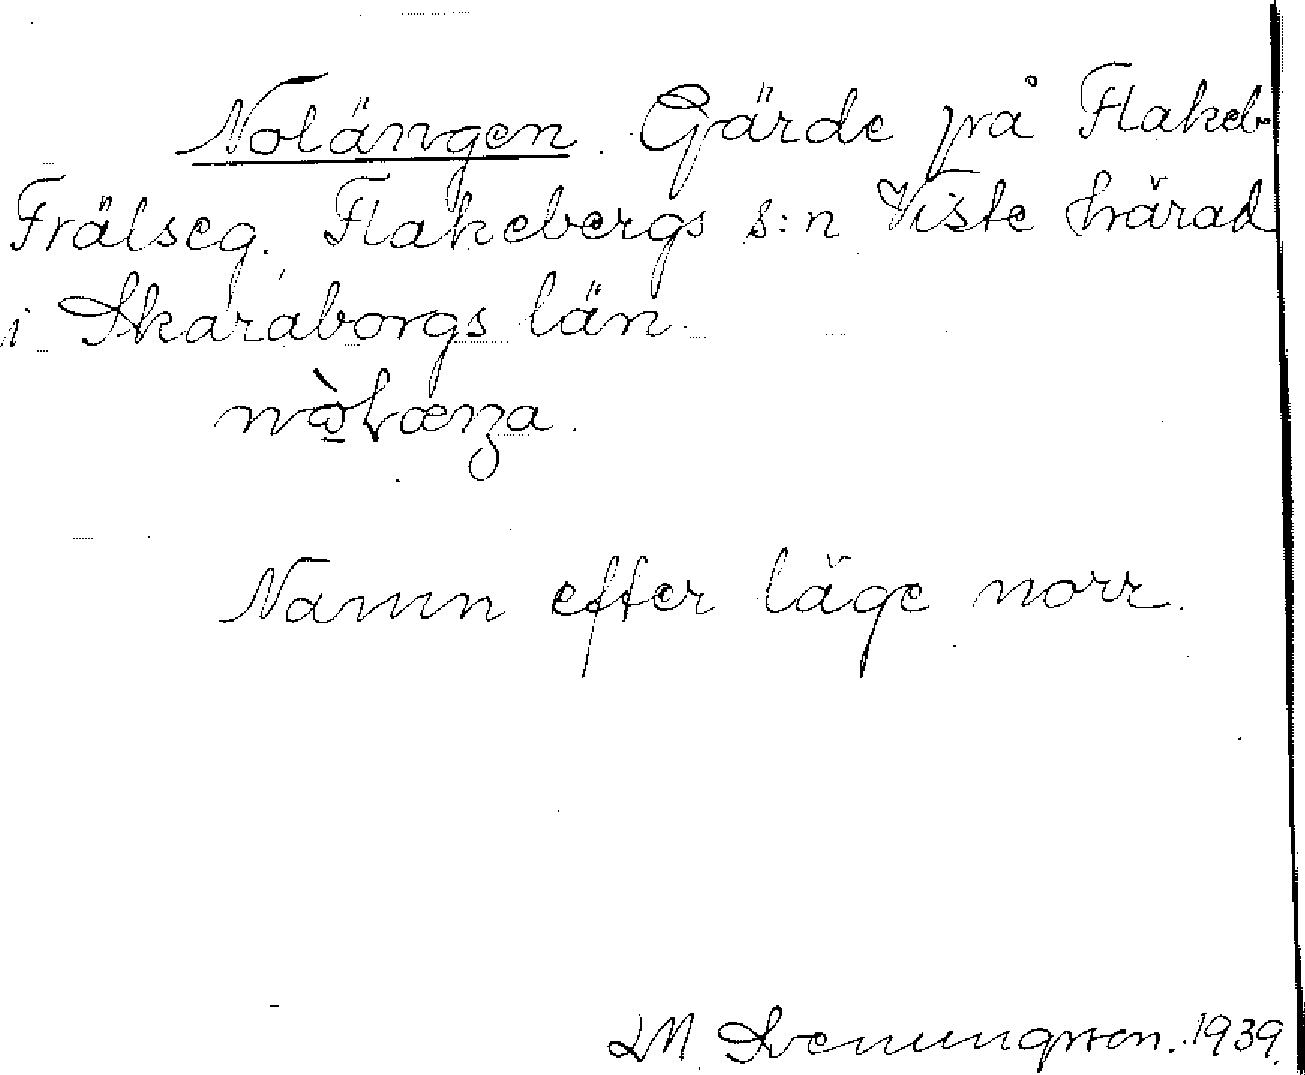 Nolängen. Gärde på Flakeb.
Frälseg. Flakebergs s:n Viste härad
i Skaraborgs län.
Namn efter läge norr.
LM Svenungsson. 1939.